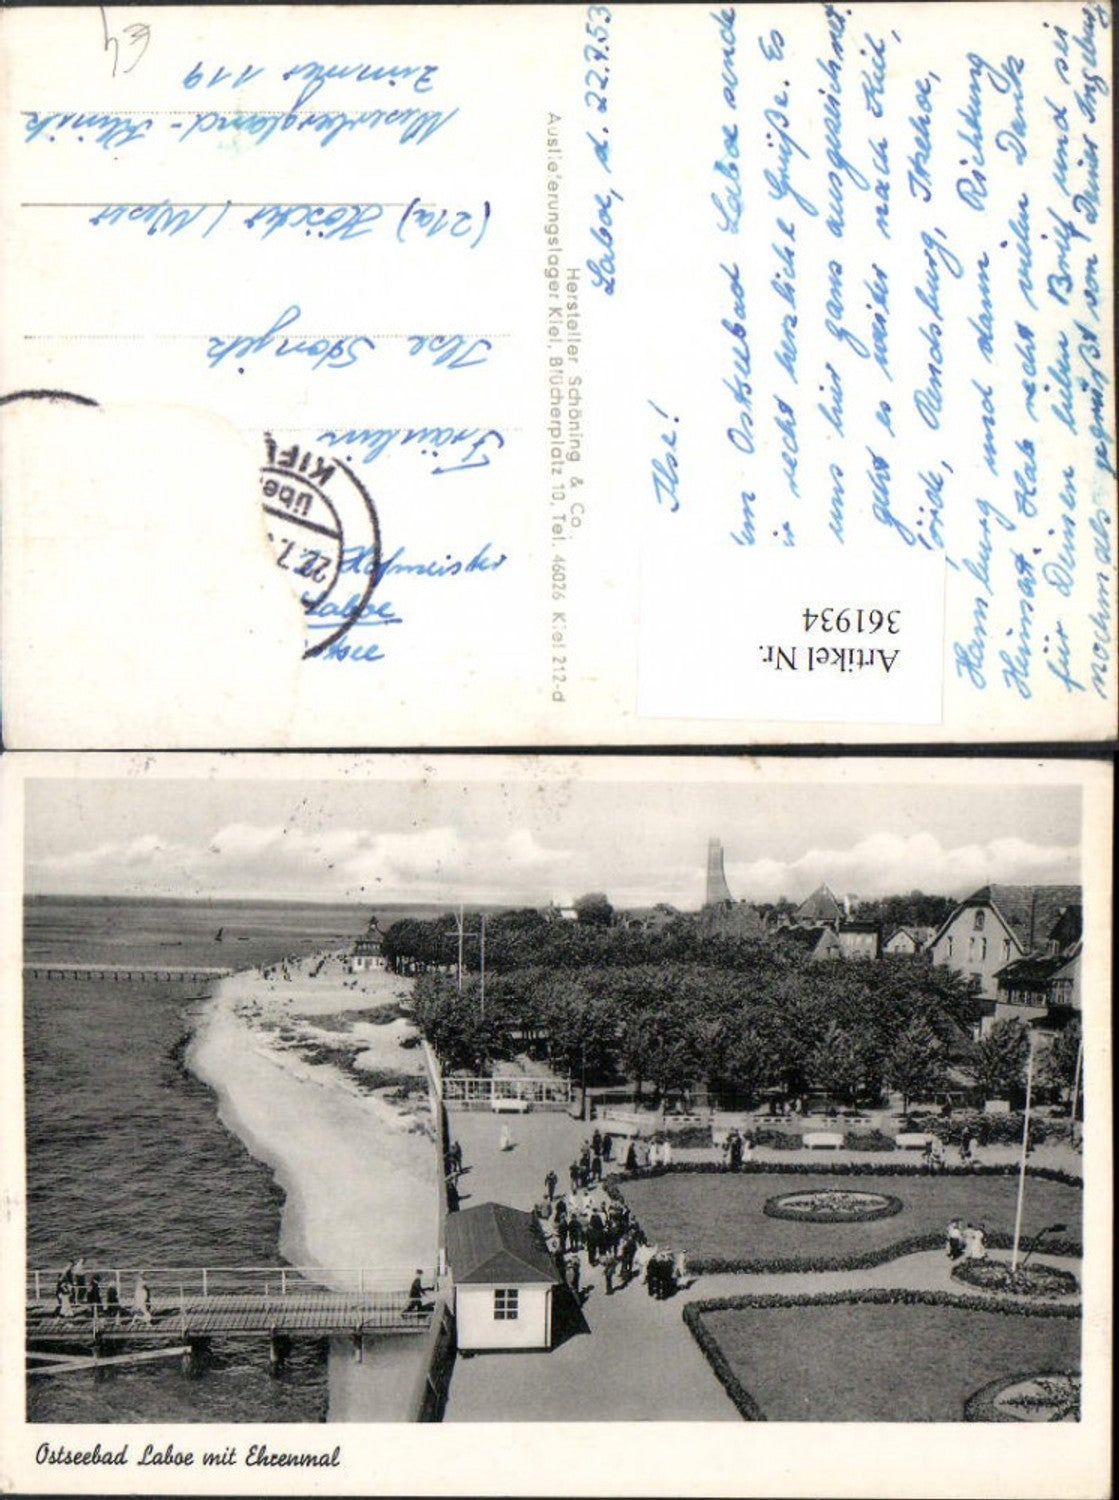 Laboe, d. 22.7.53
Ilse!
Ostseebad Laboe sende
recht herzliche Grüße. Es
uns hier ganz ausgezeichnet.
geht es weiter nach Kiel,
Rendsburg, Itzehoe,
Hamburg und dann Richtung
Heimat. Hab recht vielen Dank
für Deinen lieben Brief und sei
nochmals gegrüßt von Deiner Ingeburg
Artikel Nr.
361934
Hersteller Schöning & Co.
Auslieferungslager Kiel, Blücherplatz 10, Tel. 46026 Kiel 212-d
Laboe
22.7.
übe
KIE
Fräulein
Ilse
(21a) Höxter / Weser
Weserbergland-Klinik
Zimmer 119
€4
Ostseebad Laboe mit Ehrenmal